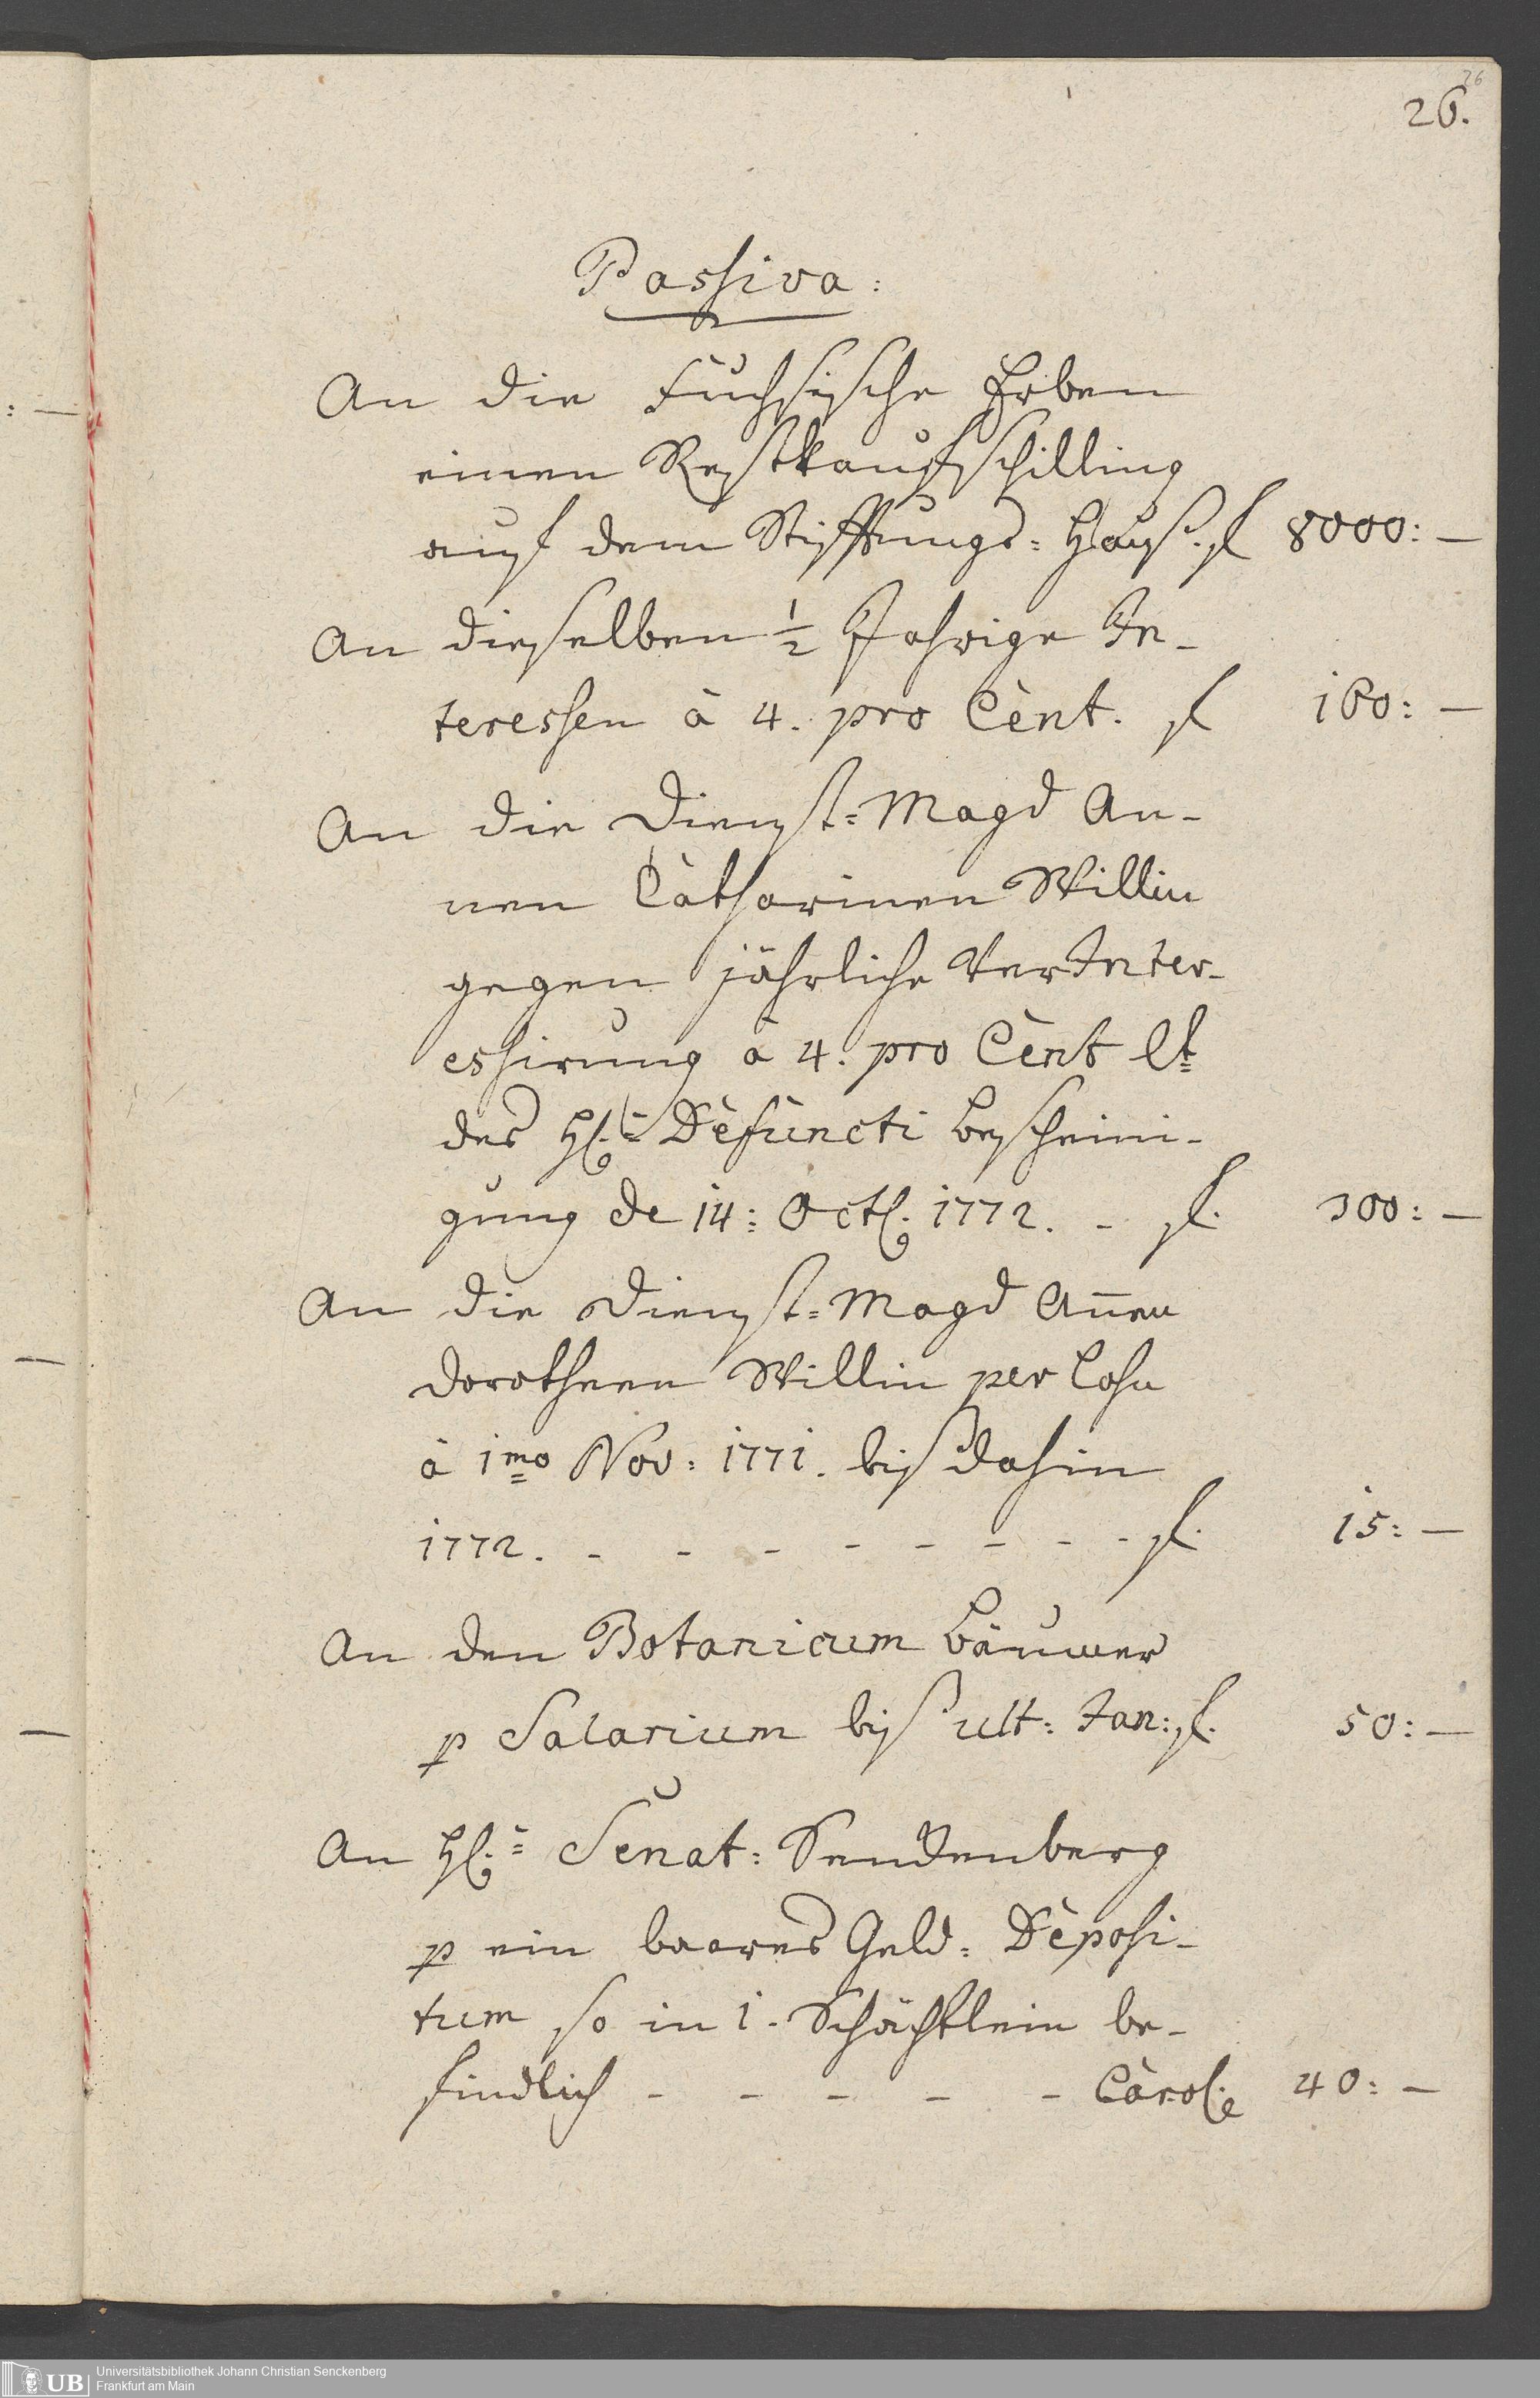 26
26.
Passiva:
An die Fuchsische Erben
einen Restkaufschilling
auf dem Stifftungs=Hauß. fl 8000: —
An dieselben ½ Jahrige In-
teressen à 4. pro Cent. fl 160: —
An die Dienst=Magd An-
nen Catharinen Willin
gegen jährliche VerInter-
essirung à 4. pro Cent lt
des H: Defuncti bescheini-
gung de 14: Oct: 1772. - fl. 300: —
An die Dienst=Magd Añen
Dorotheen Willin per Lohn
à 1mo Nov: 1771. biß dahin
1772. - - - - - - - - fl. 15: —
An den Botanicum Bäumer
p Salarium biß ult: Jan: fl. 50: —
An H: Senat: Senckenberg
p ein baares Geld=Deposi-
tum so in 1. Schächtlein be-
findlich - - - - - Carol: 40: —
UB Universitätsbibliothek Johann Christian Senckenberg
Frankfurt am Main